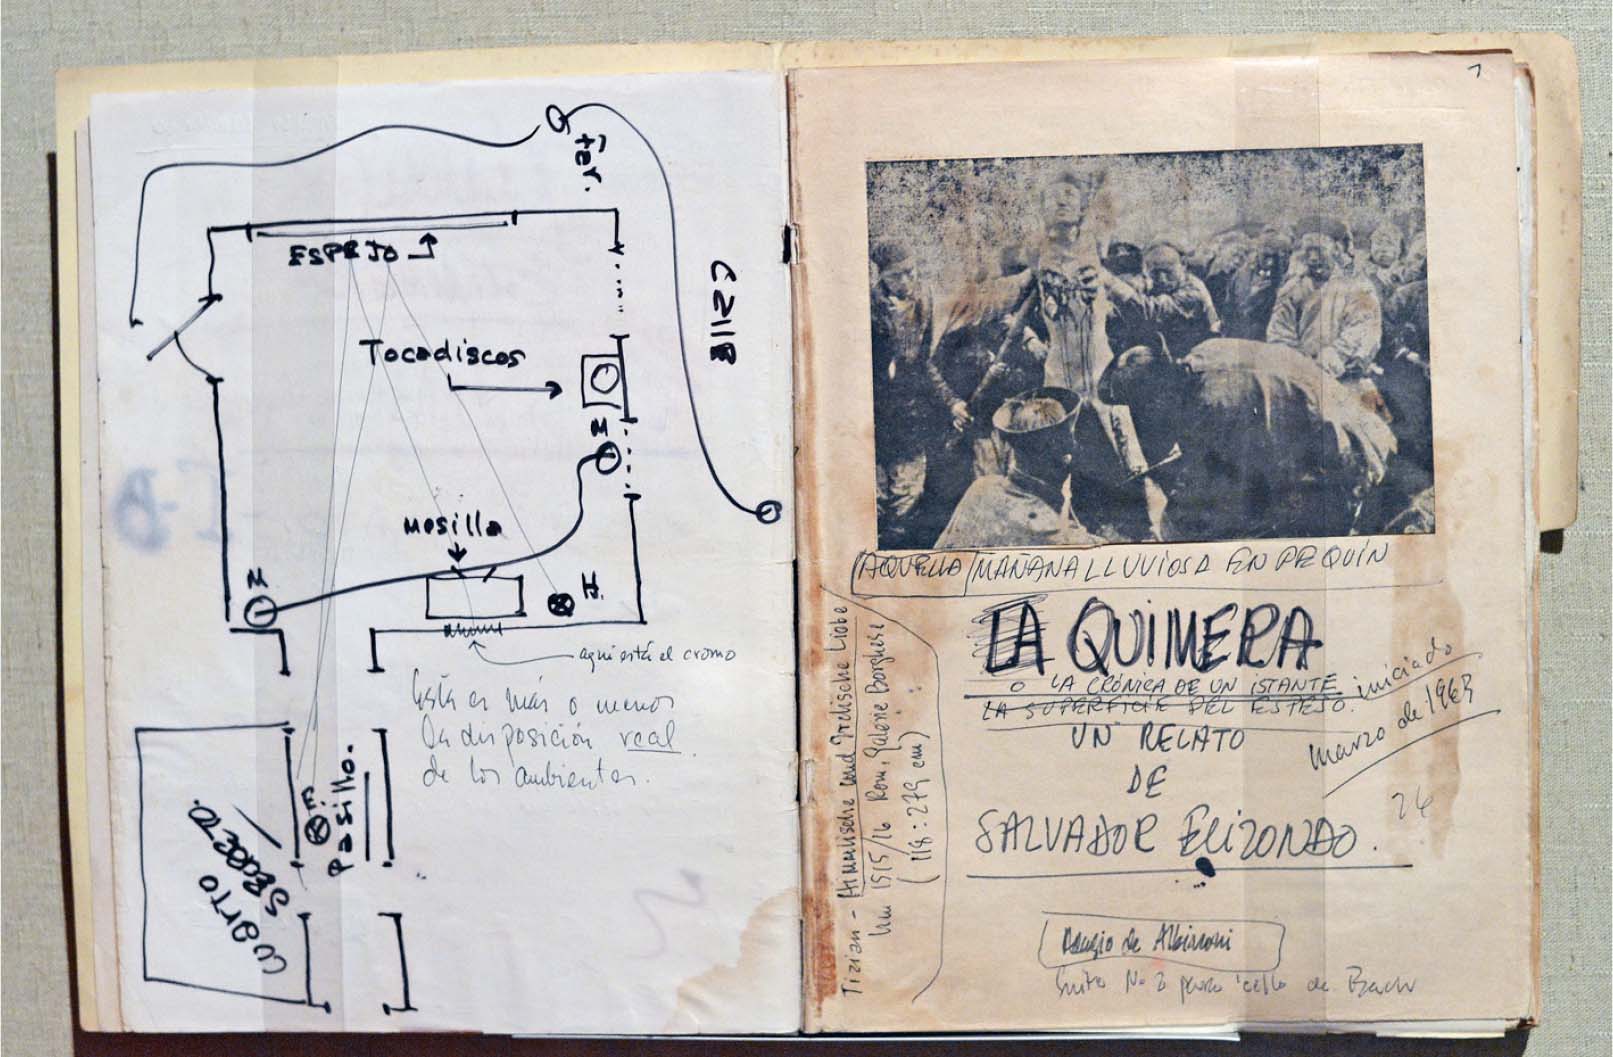 ter.
ESPEJO
CZ11B
Tocadiscos
M
Mesilla
M
H.
aquí está el cromo
Esta es más o menos
la disposición real
de los ambientes.
Pasillo.
E.
CUARTO
SECRETO.
1
AQUELLA MAÑANA LLUVIOSA EN PEQUIN
LA QUIMERA
O LA CRÓNICA DE UN ISTANTE
LA SUPERFICIE DEL ESPEJO.
iniciado
marzo de 1963
UN RELATO
DE
SALVADOR ELIZONDO.
24
Tizian - Himmlische und Irdische Liebe
Um 1515/16 Rom, Galerie Borghese
(118:279 cm)
Adagio de Albinoni
Suite No 2 para cello de Bach